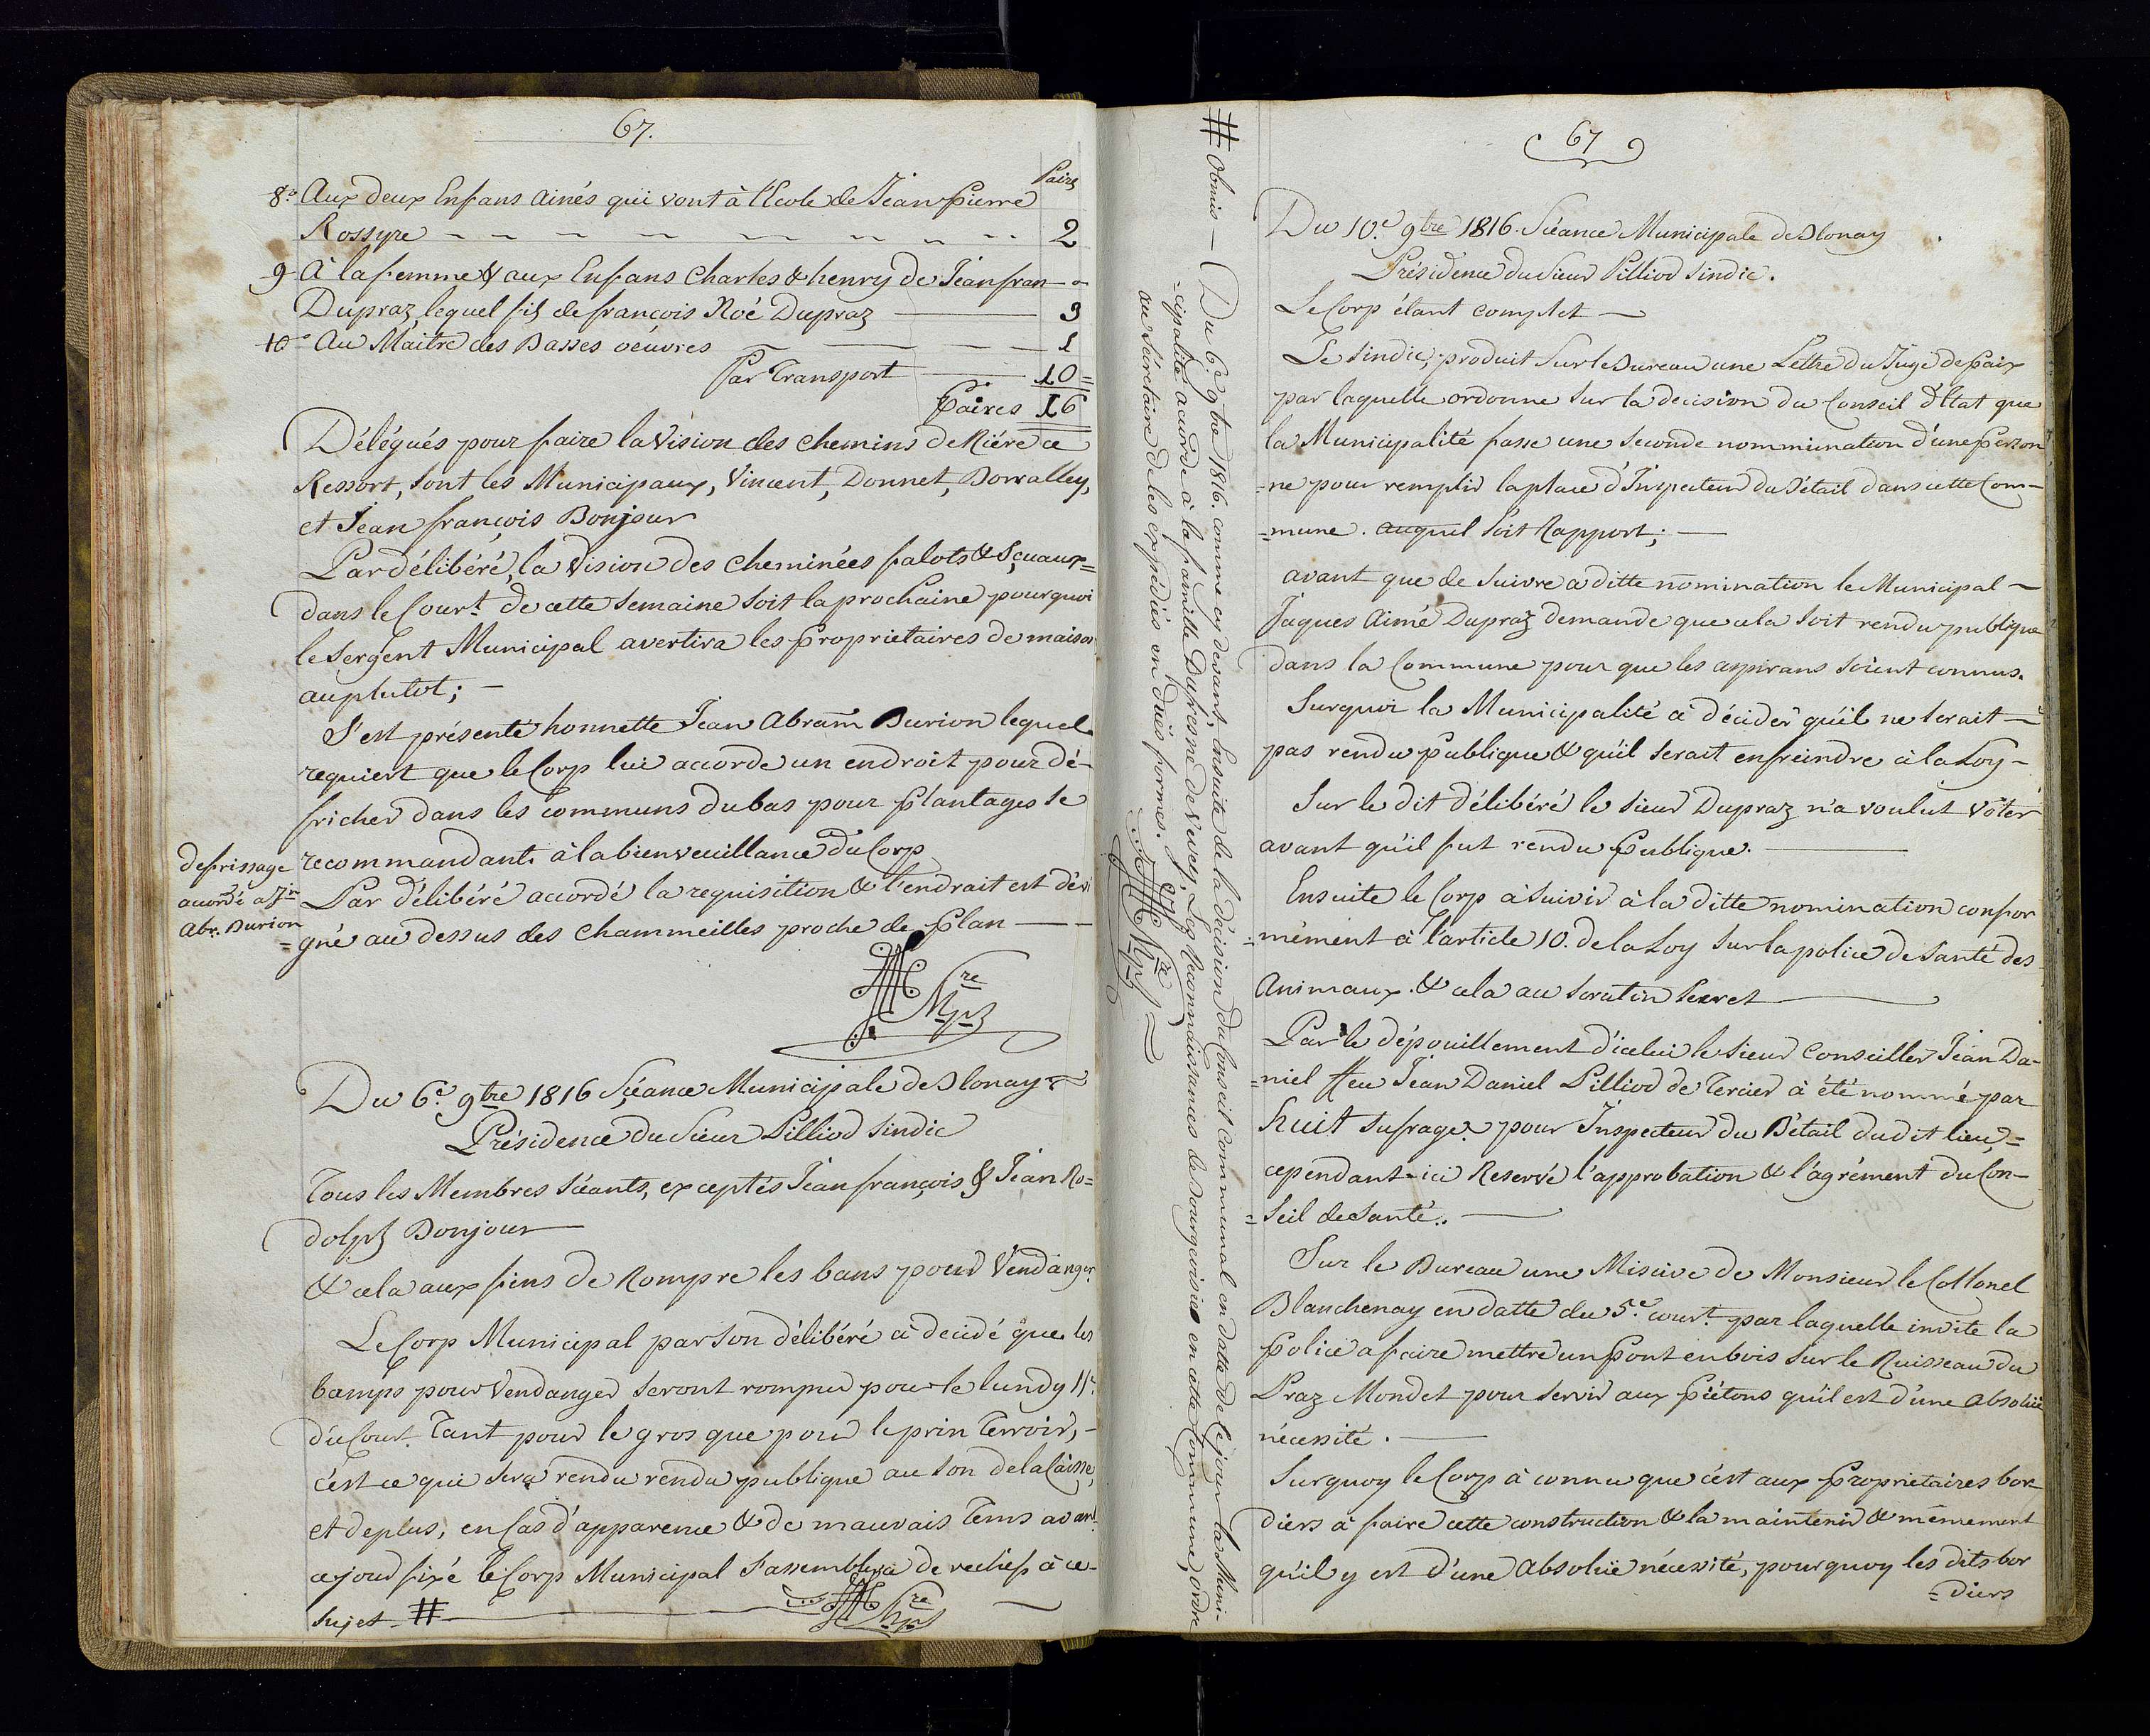 67.
Paires
8.° Aux deux Enfans Ainés qui vont à l'Ecole de Jean Pierre
Rossyre 2
9 à la femme & aux Enfans Charles & henry de Jean fran-
Dupraz, lequel fils de françois Noé Dupraz 3
10° Au Maitre des Basses oeuvres 1
Par Transport 10=
Paires 16
Délégués pour faire la Vision des chemins de Riére ce
Ressort, sont les Municipaux, Vincent, Donnet, Borralley,
et Jean françois Bonjour
Par délibéré, la Vision des cheminées falots & Sçeaux=
dans le Cour.t de cette semaine soit la prochaine pourquoi
le sergent Municipal avertira les Proprietaires de maison
au plutot; —
S'est présenté honnette Jean Abram Burion lequel
requiert que le Corp lui accorde un endroit pour dé-
fricher dans les communs du bas pour Plantages se
recommandant à la bienveuillance du Corp
defrissage
accordé a Jn
Abr. Burion
Par délibéré accordé la requisition & l'endrait est dési
=gné au dessus des Chammeilles proche de Plan —
Du 6.e 9bre 1816 Séance Municipale de Blonay
Présidence du Sieur Pilliod sindic
Tous les Membres séants, exceptés Jean françois & Jean Ro=
dolph Bonjour
& cela aux fins de Rompre les bans pour Vendanger.
Le Corp Municipal par son délibéré à decidé que les
bamps pour Vendanger seront rompu pour le lundy 11e
du Cour.t Tant pour le gros que pour le prin Terroir, -
c'est ce qui sera rendu rendu publique au son de la Caisse,
et de plus, en Cas d'apparence & de mauvais Tems avant
ce jour fixé le Corp Municipal s'assemblera de rechef à ce-
sujet #
# Obmis — (Du 6.e 9bre 1816. comme cy devant, Ensuite de la décision du Conseil Communal en date de ce jour la Muni-
=cipalité accorde à la famille Dufresne de Vevey, Les Reconnaissances de bourgeoisie en cette Commune, ordre
au sécretaire de les expédier en dues formes.
67
Du 10.e 9bre 1816. Séance Municipale de Blonay
Présidence du Sieur Pilliod Sindic.
Le Corp étant Complet —
Le sindic, produit sur le Bureau une Lettre du Juge de Paix
par laquelle ordonne sur la decision du Conseil d'Etat que
la Municipalité fasse une seconde nommination d'une Person
=ne pour remplir la place d'Inspecteur du Bétail dans cette Com-
=mune. auquel Soit Rapport; —
avant que de suivre a ditte nomination le Municipal —
Jaques Aimé Dupraz demande que cela soit rendu publique
dans la Commune pour que les aspirans soient connus.
Surquoi la Municipalité à décider qu'il ne serait —
pas rendu Publique & qu'il serait enfreindre à la Loy —
Sur le dit délibéré le sieur Dupraz n'a voulut Voter
avant qu'il fut rendu Publique.
Ensuite le Corp à suivir à la ditte nomination confor
=mément à l'article 10. de la Loy sur la police de santé des
Animaux & cela au scrutin secret
Par le dépouillement d'icelui le sieur Conseiller Jean Da-
=niel feu Jean Daniel Pilliod de Tercier à été nommé par
huit sufrage pour Inspecteur du Bétail du dit lieu, =
cependant-ici Reservé l'approbation & l'agrément du Con-
=seil de Santé. —
Sur le Bureau une Misive de Monsieur le Collonel
Blanchenay en datte du 5.e cour.t par laquelle invite la
Police a faire mettre un Pont en bois sur le Ruisseau du
Praz Mondet pour servir aux Piétons qu'il est d'une absoluë
nécessité. —
Surquoy le Corp à connu que c'est aux Proprietaires bor
diers à faire cette construction & la maintenir & mêmement
qu'il y est d'une Absoluë nécessité, pourquoy les dits bor
=diers